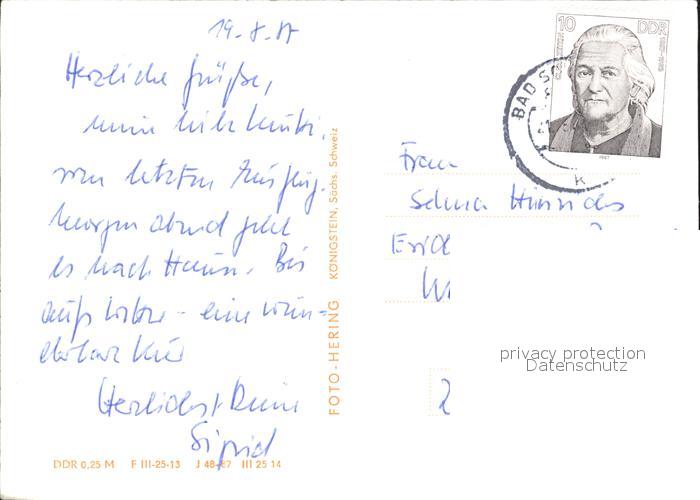 19.8.87
Herzliche Grüße,
meine liebe
vom letzten Ausflug.
Morgen abend geht
es nach Hause. Bis
aufs Wetter - eine wun-
derbare Kur
Herzlichst Deine
Sigrid
FOTO-HERING KÖNIGSTEIN, Sächs. Schweiz
DDR 0,25 M F III-25-13 J 48-87 III 25 14
10 DDR
1987
BAD SC
K
Frau
Selma Hinrichs
privacy protection
Datenschutz